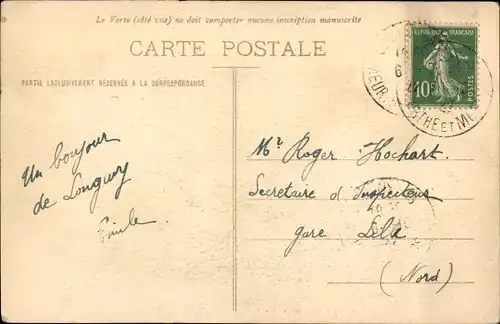 Le Verso (côté vue) ne doit comporter aucune inscription manuscrite
CARTE POSTALE
PARTIE EXCLUSIVEMENT RÉSERVÉE A LA CORRESPONDANCE
Un bonjour
de Longwy
Emile
REPUBLIQUE FRANÇAISE
10c
POSTES
MEUR
THE ET M
Mr. Roger Hochart
Secretaire d'Inspecteur
gare Lille
(Nord)